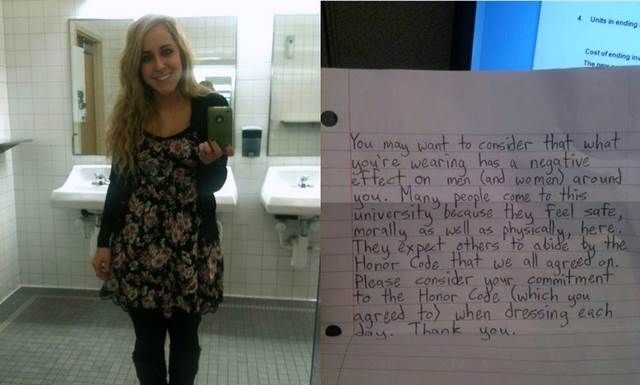 4. Units in ending
Cost of ending inv
The new
You may want to consider that what
you're wearing has a negative
effect on men (and women) around
you. Many people come to this
university because they feel safe,
morally as well as physically, here.
They expect others to abide by the
Honor Code that we all agreed on.
Please consider your commitment
to the Honor Code (which you
agreed to) when dressing each
day. Thank you.